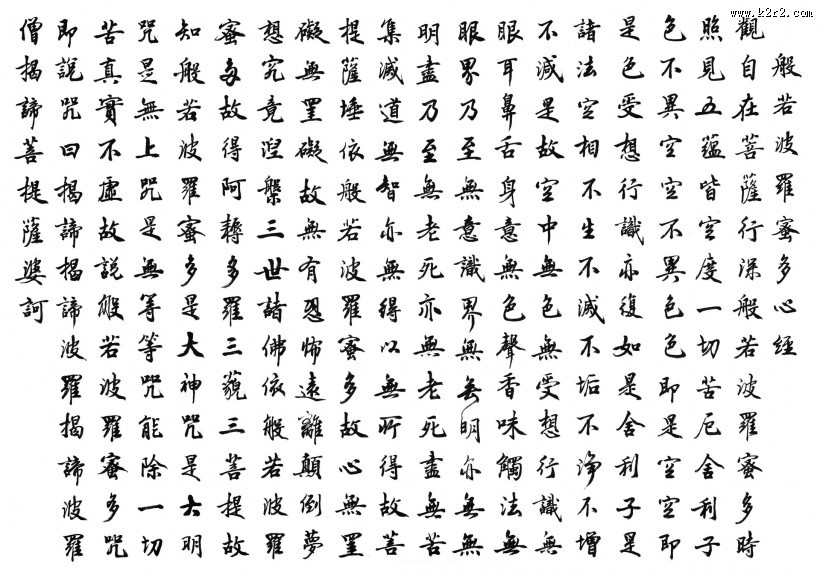 www.k2r2.com
般若波羅蜜多心經
觀自在菩薩行深般若波羅蜜多時
照見五蘊皆空度一切苦厄舍利子
色不異空空不異色色即是空空即
是色受想行識亦復如是舍利子是
諸法空相不生不滅不垢不淨不增
不減是故空中無色無受想行識無
眼耳鼻舌身意無色聲香味觸法無
眼界乃至無意識界無無明亦無無
明盡乃至無老死亦無老死盡無苦
集滅道無智亦無得以無所得故菩
提薩埵依般若波羅蜜多故心無罣
礙無罣礙故無有恐怖遠離顛倒夢
想究竟涅槃三世諸佛依般若波羅
蜜多故得阿耨多羅三藐三菩提故
知般若波羅蜜多是大神咒是大明
咒是無上咒是無等等咒能除一切
苦真實不虛故說般若波羅蜜多咒
即說咒曰揭諦揭諦波羅揭諦波羅
僧揭諦菩提薩婆訶